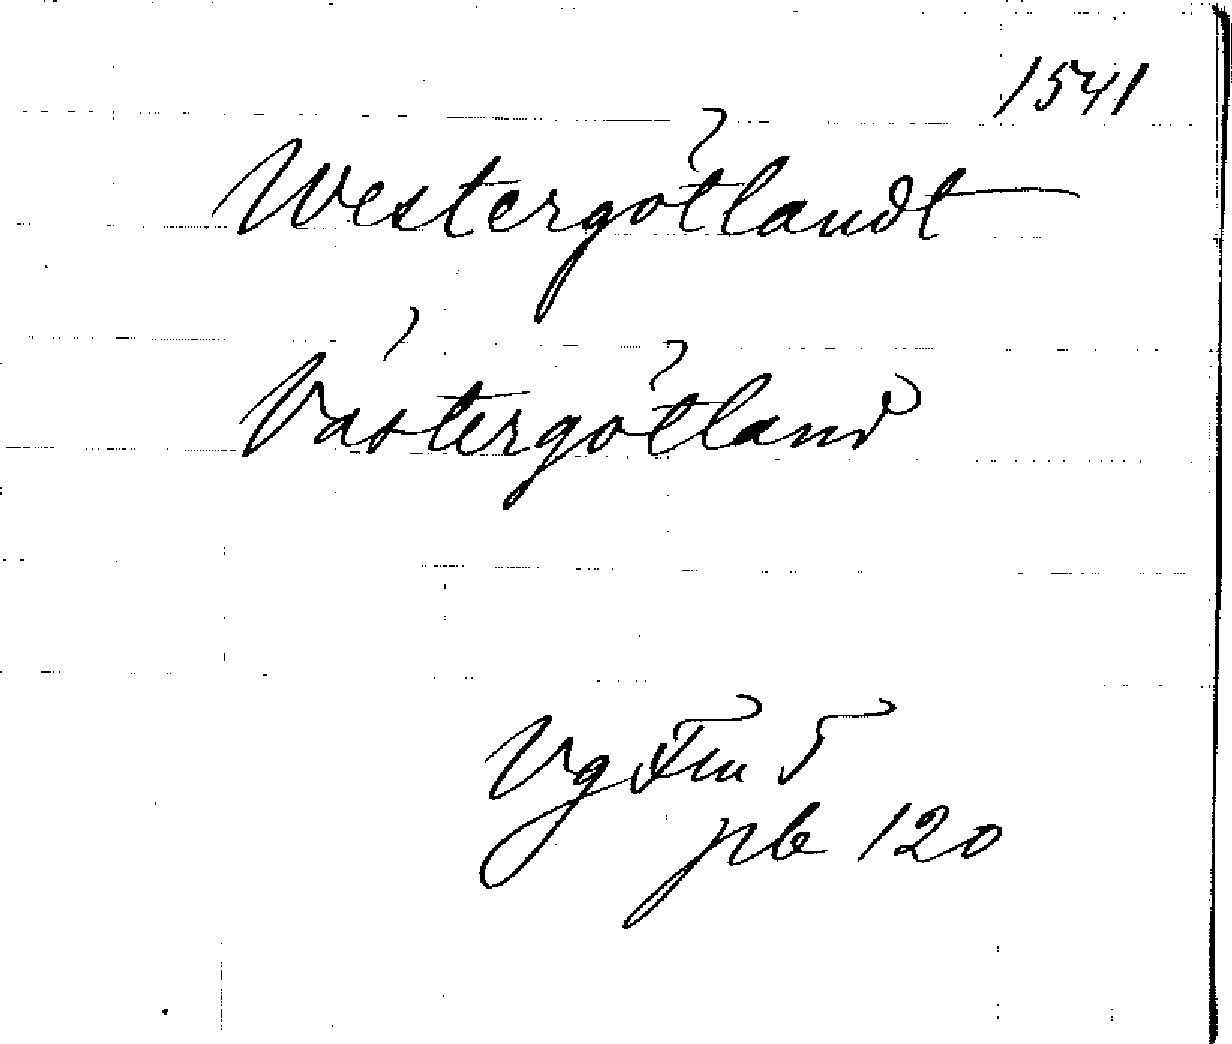 1541
Westergötlandt
Västergötland
Vg Fm 5
120